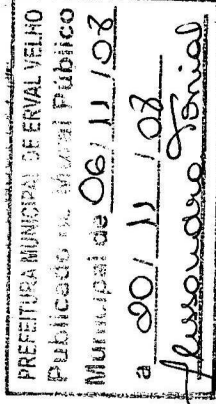 PREFEITURA MUNICIPAL DE ERVAL VELHO
Publicado no Mural Público
Municipal de 06/11/08
a 20/11/08
Alessandra Tonial